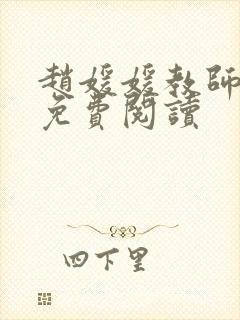 趙媛媛教師
免費閱讀
四下里